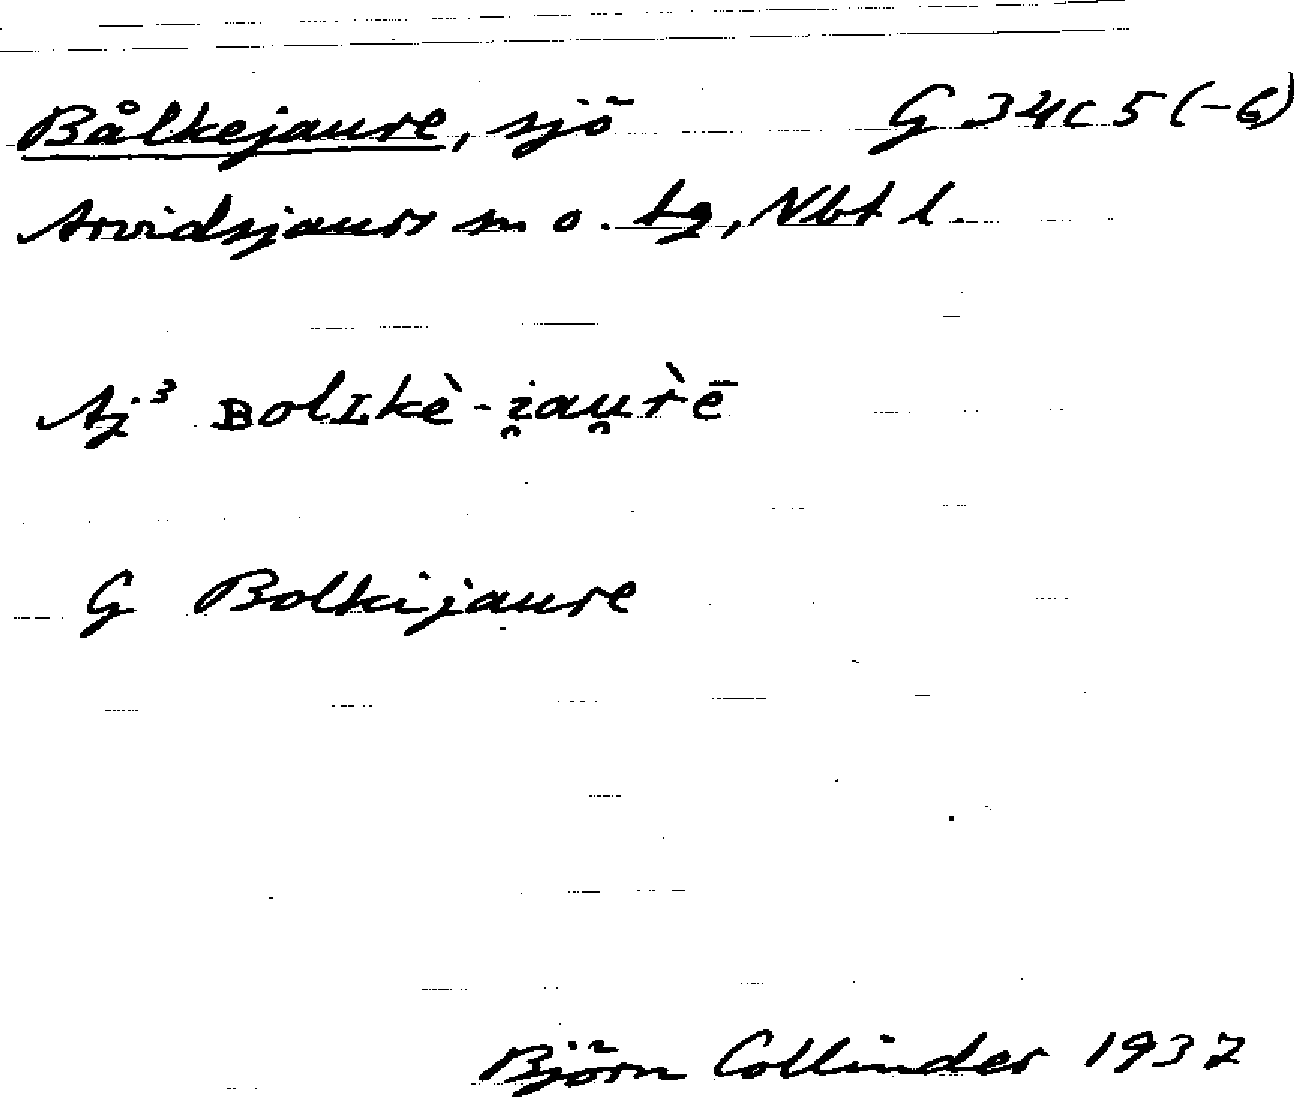 Bålkejaure, sjö G 34c 5 (-6)
Arvidsjaurs sn o. tg, Nbt l.
Aj³ ʙolʟkè-i̯au̯r̀ē
G Bolkijaure
Björn Collinder 1937